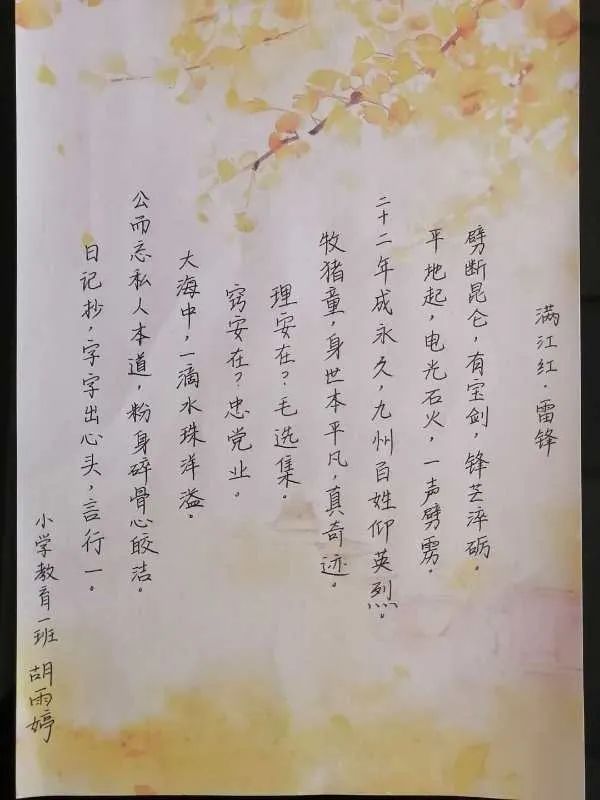 满江红·雷锋
劈断昆仑，有宝剑，锋芒淬砺。
平地起，电光石火，一声劈雳。
二十二年成永久，九州百姓仰英烈。
牧猪童，身世本平凡，真奇迹。
理安在？毛选集。
窍安在？忠党业。
大海中，一滴水珠洋溢。
公而忘私人本道，粉身碎骨心皎洁。
日记抄，字字出心头，言行一。
小学教育一班 胡雨婷